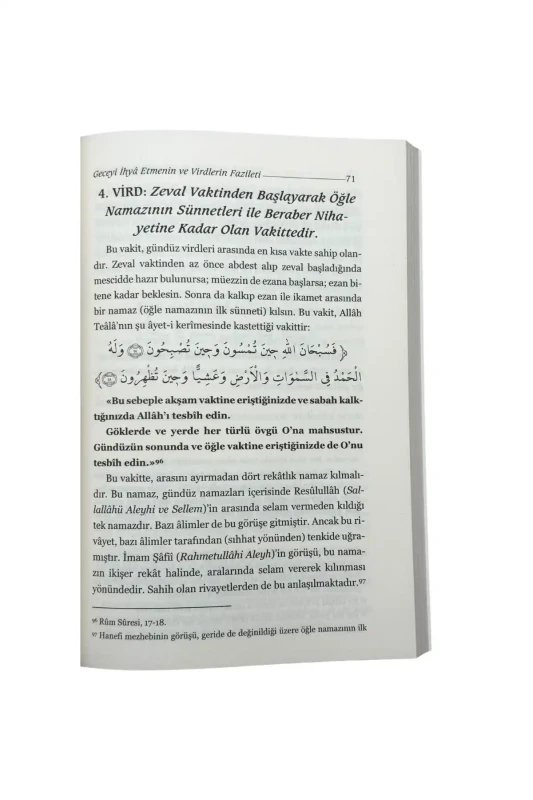 Geceyi İhyâ Etmenin ve Virdlerin Fazileti 71
4. VİRD: Zeval Vaktinden Başlayarak Öğle
Namazının Sünnetleri ile Beraber Niha-
yetine Kadar Olan Vakittedir.
Bu vakit, gündüz virdleri arasında en kısa vakte sahip olan-
dır. Zeval vaktinden az önce abdest alıp zeval başladığında
mescidde hazır bulunursa; müezzin de ezana başlarsa; ezan bi-
tene kadar beklesin. Sonra da kalkıp ezan ile ikamet arasında
bir namaz (öğle namazının ilk sünneti) kılsın. Bu vakit, Allâh
Teâlâ'nın şu âyet-i kerîmesinde kastettiği vakittir:
﴿ فَسُبْحَانَ اللّٰهِ حِينَ تُمْسُونَ وَحِينَ تُصْبِحُونَ ﴿١٧﴾ وَلَهُ
الْحَمْدُ فِي السَّمٰوَاتِ وَالْأَرْضِ وَعَشِيًّا وَحِينَ تُظْهِرُونَ ﴿١٨﴾ ﴾
«Bu sebeple akşam vaktine eriştiğinizde ve sabah kalk-
tığınızda Allâh'ı tesbîh edin.
Göklerde ve yerde her türlü övgü O'na mahsustur.
Gündüzün sonunda ve öğle vaktine eriştiğinizde de O'nu
tesbîh edin.»⁹⁶
Bu vakitte, arasını ayırmadan dört rekâtlık namaz kılmalı-
dır. Bu namaz, gündüz namazları içerisinde Resûlullâh (Sal-
lallâhü Aleyhi ve Sellem)'in arasında selam vermeden kıldığı
tek namazdır. Bazı âlimler de bu görüşe gitmiştir. Ancak bu ri-
vâyet, bazı âlimler tarafından (sıhhat yönünden) tenkide uğra-
mıştır. İmam Şâfiî (Rahmetullâhi Aleyh)'in görüşü, bu nama-
zın ikişer rekât halinde, aralarında selam vererek kılınması
yönündedir. Sahih olan rivayetlerden de bu anlaşılmaktadır.⁹⁷
⁹⁶ Rûm Sûresi, 17-18.
⁹⁷ Hanefi mezhebinin görüşü, geride de değinildiği üzere öğle namazının ilk